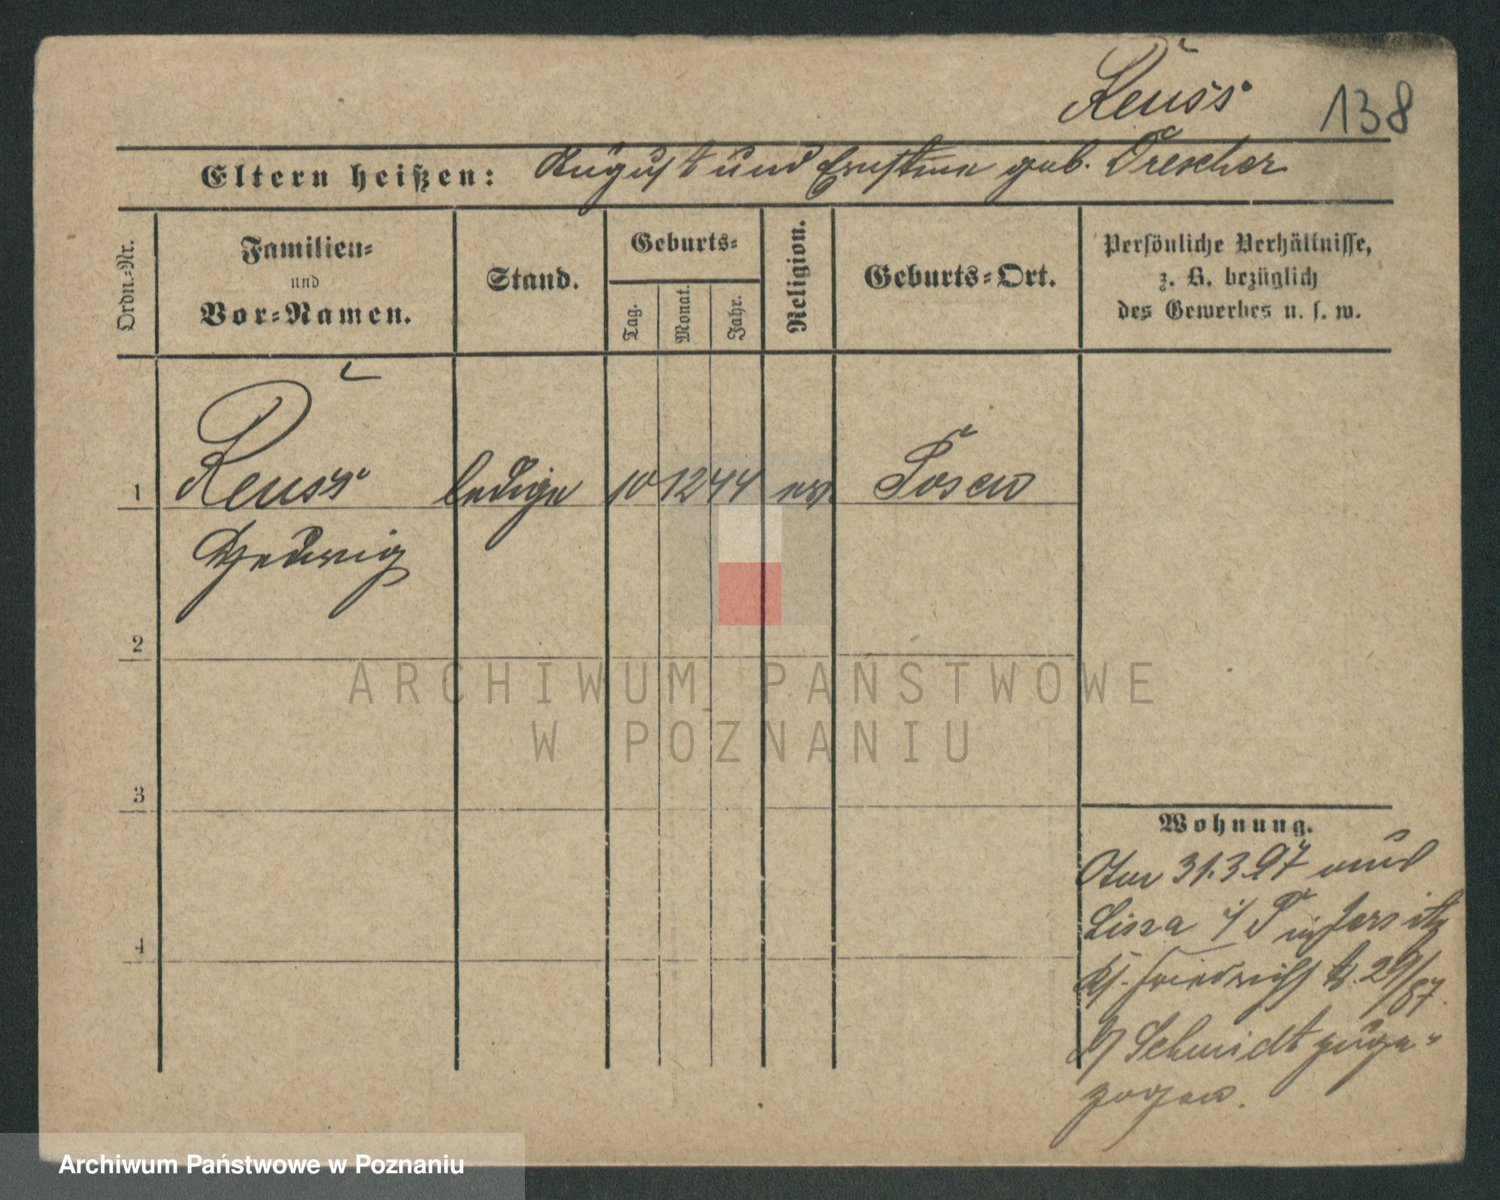 Reuss 138
Eltern heißen: August und Ernstine geb. Drescher
Ordn.-Nr.
Familien-
und
Vor-Namen.
Stand.
Geburts-
Tag.
Monat.
Jahr.
Religion.
Geburts-Ort.
Persönliche Verhältnisse,
z. B. bezüglich
des Gewerbes u. s. w.
1 Reuss ledige 10 12 44 ev Posen
Hedwig
2
3
4
Wohnung.
Am 31.3.97 aus
Lissa i/P in Jersitz
Kf. Friedrichstr. 29/
b/ Schmidt zuge-
zogen.
ARCHIWUM PAŃSTWOWE
W POZNANIU
Archiwum Państwowe w Poznaniu